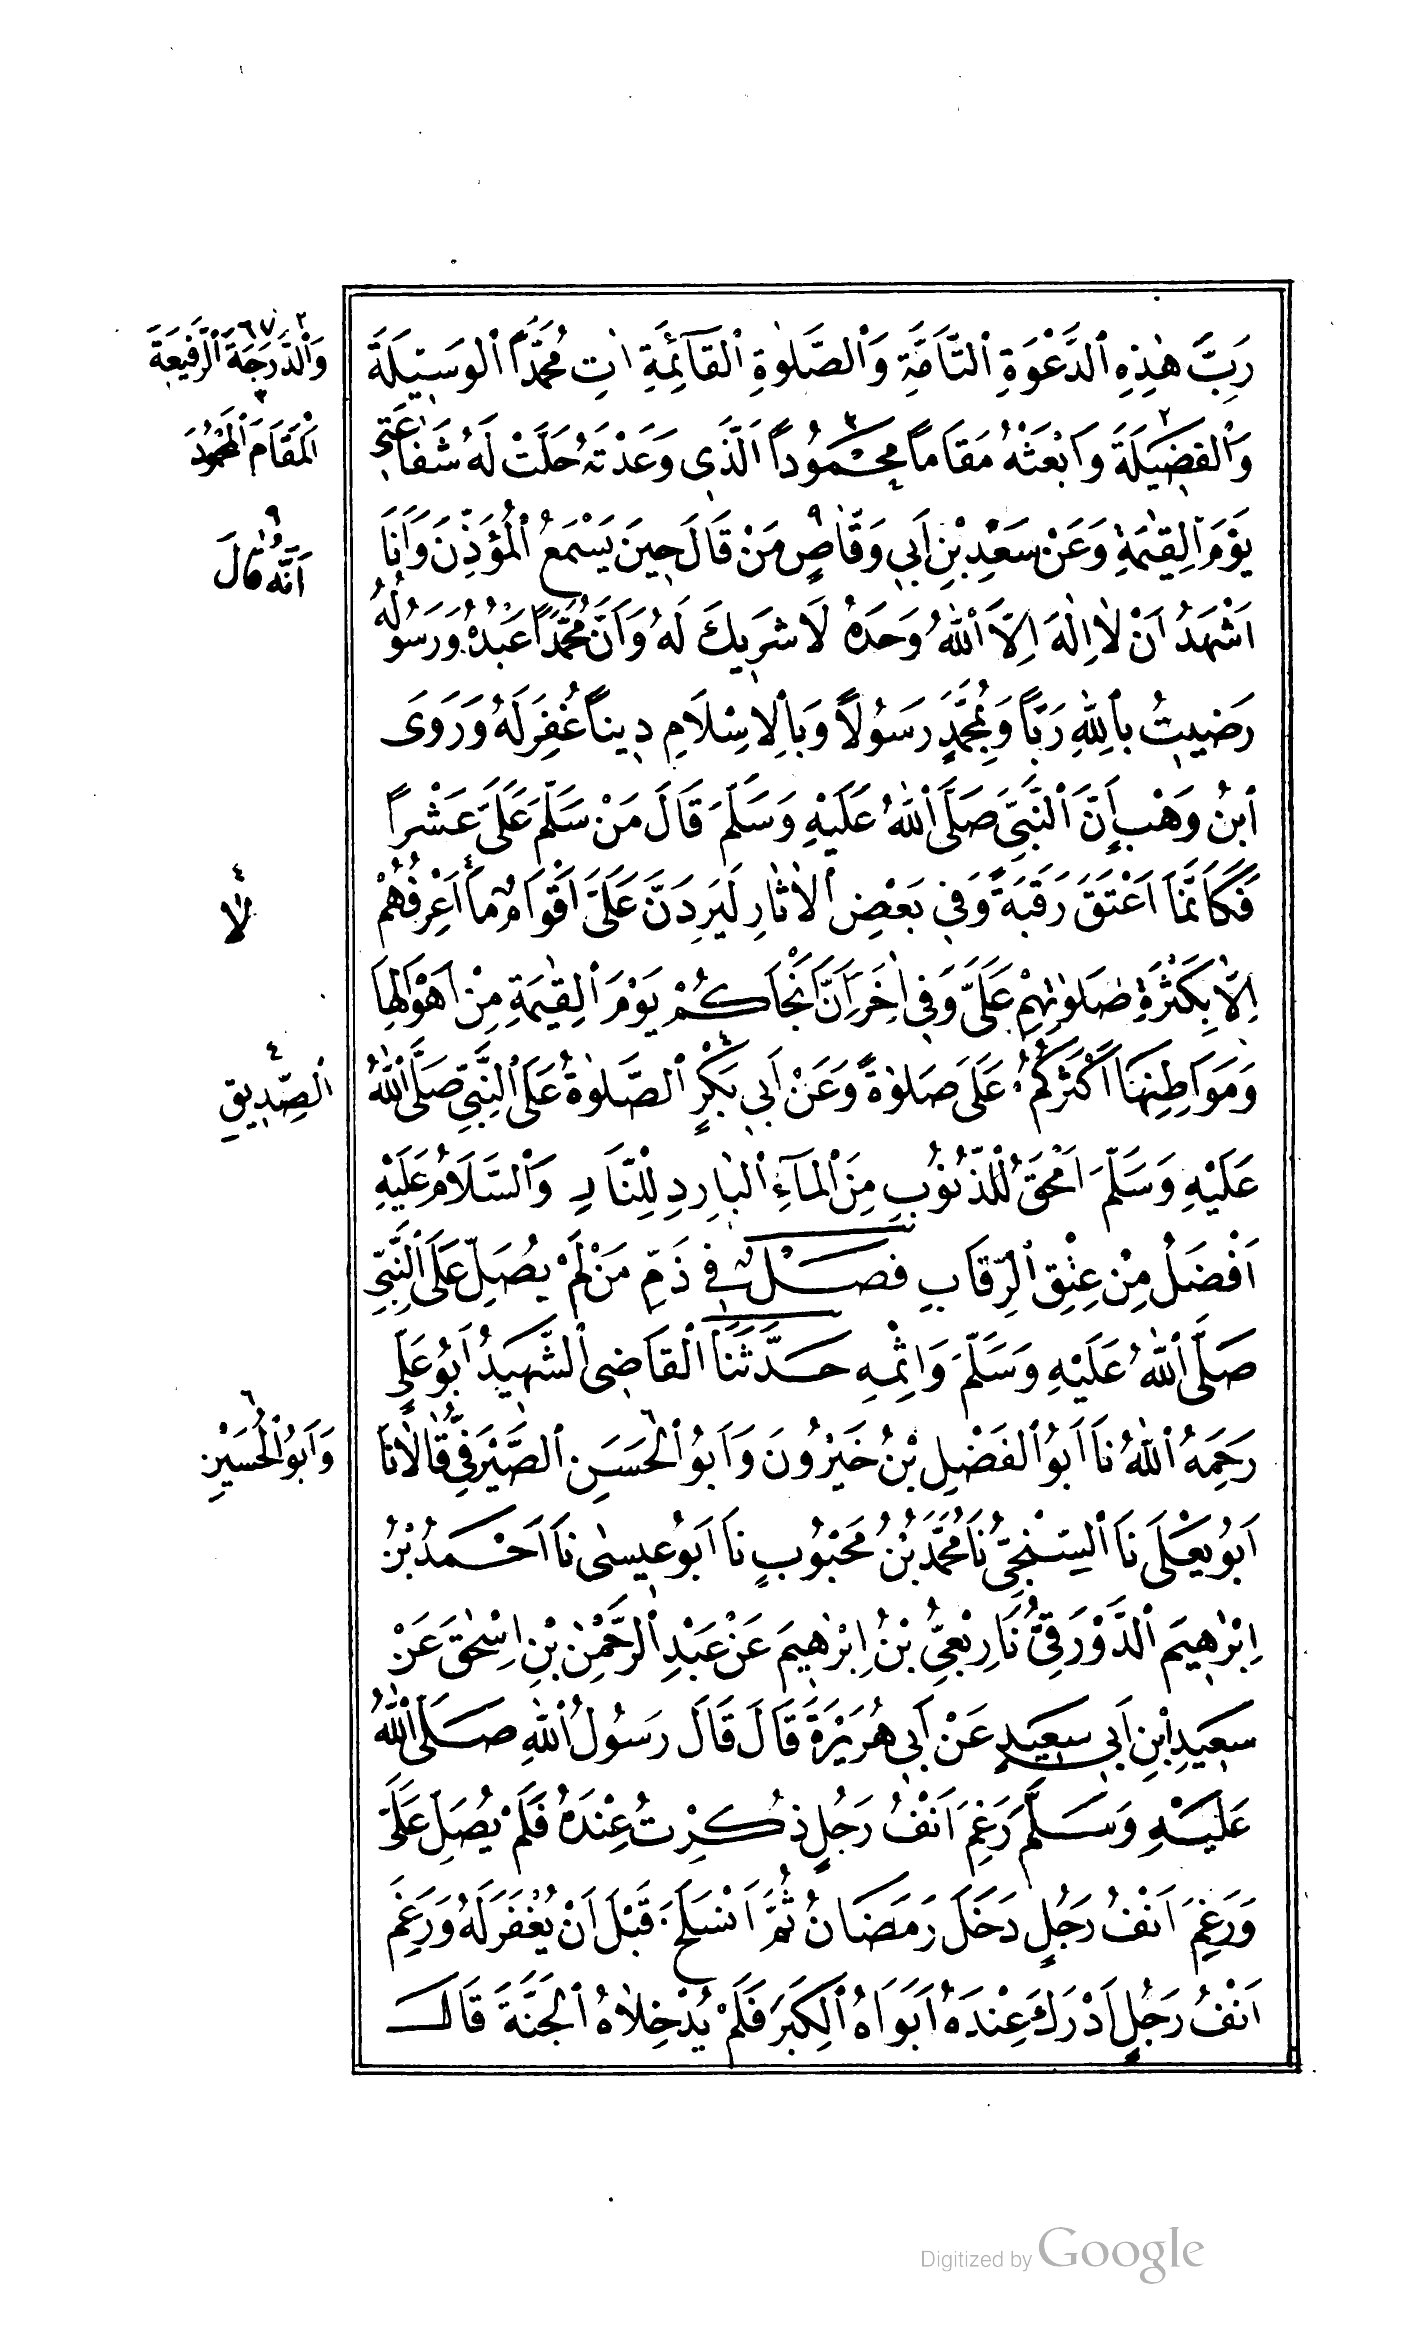 رَبَّ هٰذِهِ ٱلدَّعْوَةِ ٱلتَّامَّةِ وَٱلصَّلٰوةِ ٱلْقَآئِمَةِ اٰتِ مُحَمَّدًا ٱلْوَسِيلَةَ
وَٱلْفَضِيلَةَ وَٱبْعَثْهُ مَقَامًا مَحْمُودًا ٱلَّذِى وَعَدْتَهُ حَلَّتْ لَهُ شَفَاعَتِى
يَوْمَ ٱلْقِيٰمَةِ وَعَنْ سَعْدِ بْنِ اَبِى وَقَّاصٍ مَنْ قَالَ حِينَ يَسْمَعُ ٱلْمُؤَذِّنَ وَاَنَا
اَشْهَدُ اَنْ لَا اِلٰهَ اِلَّا ٱللّٰهُ وَحْدَهُ لَا شَرِيكَ لَهُ وَاَنَّ مُحَمَّدًا عَبْدُهُ وَرَسُولُهُ
رَضِيتُ بِٱللّٰهِ رَبًّا وَبِمُحَمَّدٍ رَسُولًا وَبِٱلْاِسْلَامِ دِينًا غُفِرَ لَهُ وَرَوَى
ٱبْنُ وَهْبٍ اَنَّ ٱلنَّبِىَّ صَلَّى ٱللّٰهُ عَلَيْهِ وَسَلَّمَ قَالَ مَنْ سَلَّمَ عَلَىَّ عَشْرًا
فَكَاَنَّمَا اَعْتَقَ رَقَبَةً وَفِى بَعْضِ ٱلْاٰثَارِ لَيَرِدَنَّ عَلَىَّ اَقْوَامٌ مَا اَعْرِفُهُمْ
اِلَّا بِكَثْرَةِ صَلٰوتِهِمْ عَلَىَّ وَفِى اٰخَرَ اِنَّ اَنْجَاكُمْ يَوْمَ ٱلْقِيٰمَةِ مِنْ اَهْوَالِهَا
وَمَوَاطِنِهَا اَكْثَرُكُمْ عَلَىَّ صَلٰوةً وَعَنْ اَبِى بَكْرٍ ٱلصَّلٰوةُ عَلَى ٱلنَّبِىِّ صَلَّى ٱللّٰهُ
عَلَيْهِ وَسَلَّمَ اَمْحَقُ لِلذُّنُوبِ مِنَ ٱلْمَآءِ ٱلْبَارِدِ لِلنَّارِ وَٱلسَّلَامُ عَلَيْهِ
اَفْضَلُ مِنْ عِتْقِ ٱلرِّقَابِ فَصْلٌ فِى ذَمِّ مَنْ لَمْ يُصَلِّ عَلَى ٱلنَّبِىِّ
صَلَّى ٱللّٰهُ عَلَيْهِ وَسَلَّمَ وَاِثْمِهِ حَدَّثَنَا ٱلْقَاضِى ٱلشَّهِيدُ اَبُو عَلِىٍّ
رَحِمَهُ ٱللّٰهُ نَا اَبُو ٱلْفَضْلِ بْنُ خَيْرُونَ وَاَبُو ٱلْحَسَنِ ٱلصَّيْرَفِىُّ قَالَا نَا
اَبُو يَعْلَى نَا ٱلسِّنْجِىُّ نَا مُحَمَّدُ بْنُ مَحْبُوبٍ نَا اَبُو عِيسٰى نَا اَحْمَدُ بْنُ
اِبْرٰهِيمَ ٱلدَّوْرَقِىُّ نَا رِبْعِىُّ بْنُ اِبْرٰهِيمَ عَنْ عَبْدِ ٱلرَّحْمٰنِ بْنِ اِسْحٰقَ عَنْ
سَعِيدِ ابْنِ اَبِى سَعِيدٍ عَنْ اَبِى هُرَيْرَةَ قَالَ قَالَ رَسُولُ ٱللّٰهِ صَلَّى ٱللّٰهُ
عَلَيْهِ وَسَلَّمَ رَغِمَ اَنْفُ رَجُلٍ ذُكِرْتُ عِنْدَهُ فَلَمْ يُصَلِّ عَلَىَّ
وَرَغِمَ اَنْفُ رَجُلٍ دَخَلَ رَمَضَانُ ثُمَّ انْسَلَخَ قَبْلَ اَنْ يُغْفَرَ لَهُ وَرَغِمَ
اَنْفُ رَجُلٍ اَدْرَكَ عِنْدَهُ اَبَوَاهُ ٱلْكِبَرَ فَلَمْ يُدْخِلَاهُ ٱلْجَنَّةَ قَالَ
٢ ٦٧
وَٱلدَّرَجَةَ ٱلرَّفِيعَةَ
٣
اَلْمَقَامَ ٱلْمَحْمُودَ
٩
اَنَّهُ قَالَ
٤
لَا
٤
ٱلصِّدِيقِ
٦
وَاَبُو ٱلْحُسَيْنِ
Digitized by Google